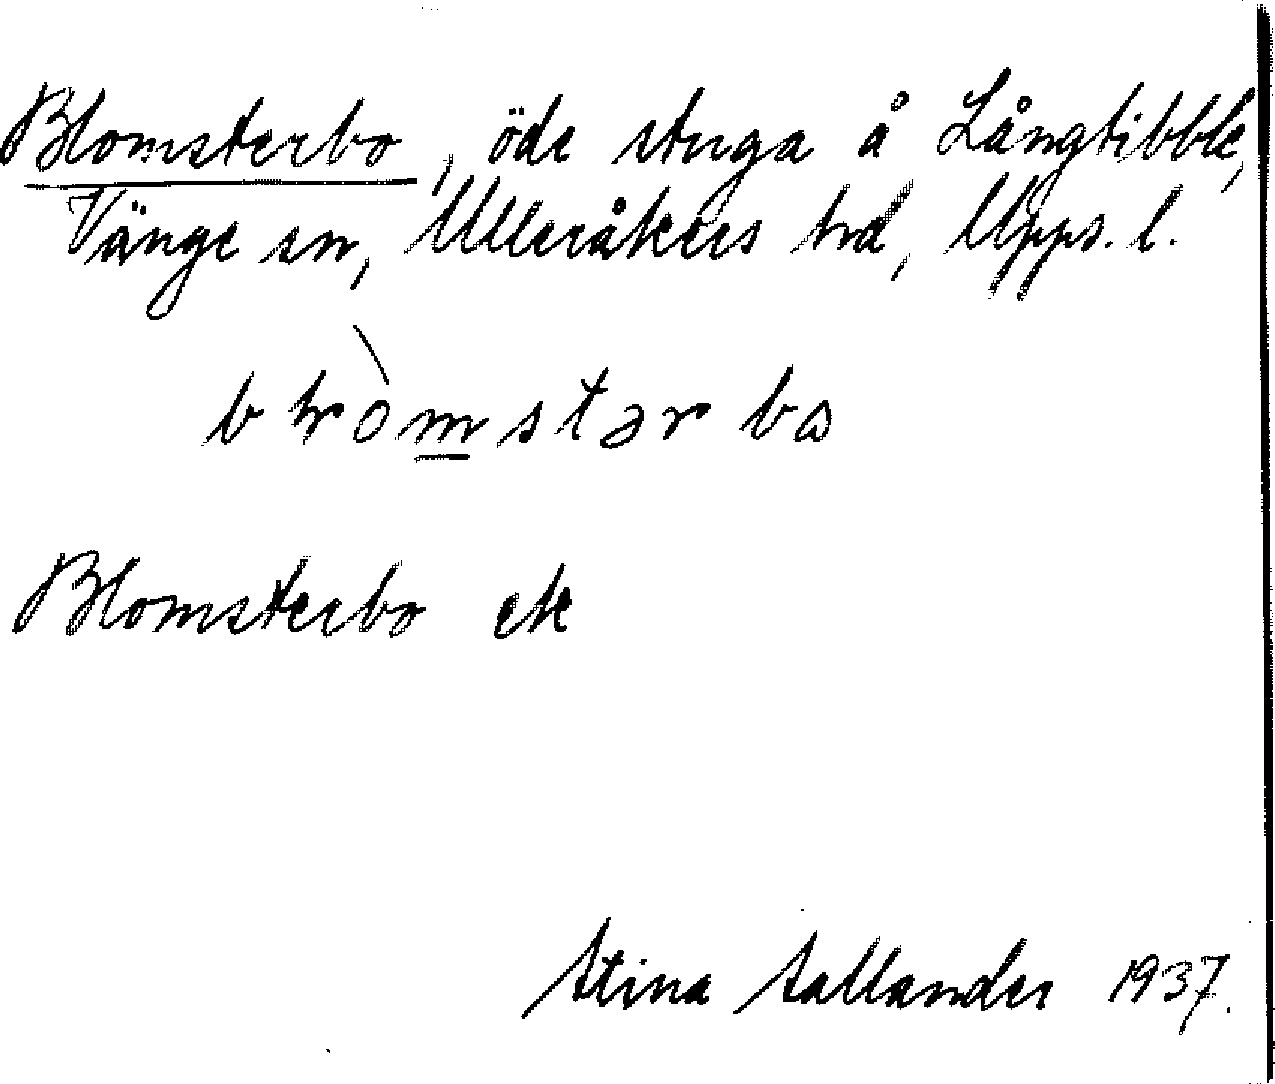 Blomsterbo, öde stuga å Långtibble,
Vänge sn, Ulleråkers hd, Upps. l.
Blomsterbo ek
Stina Sallander 1937.